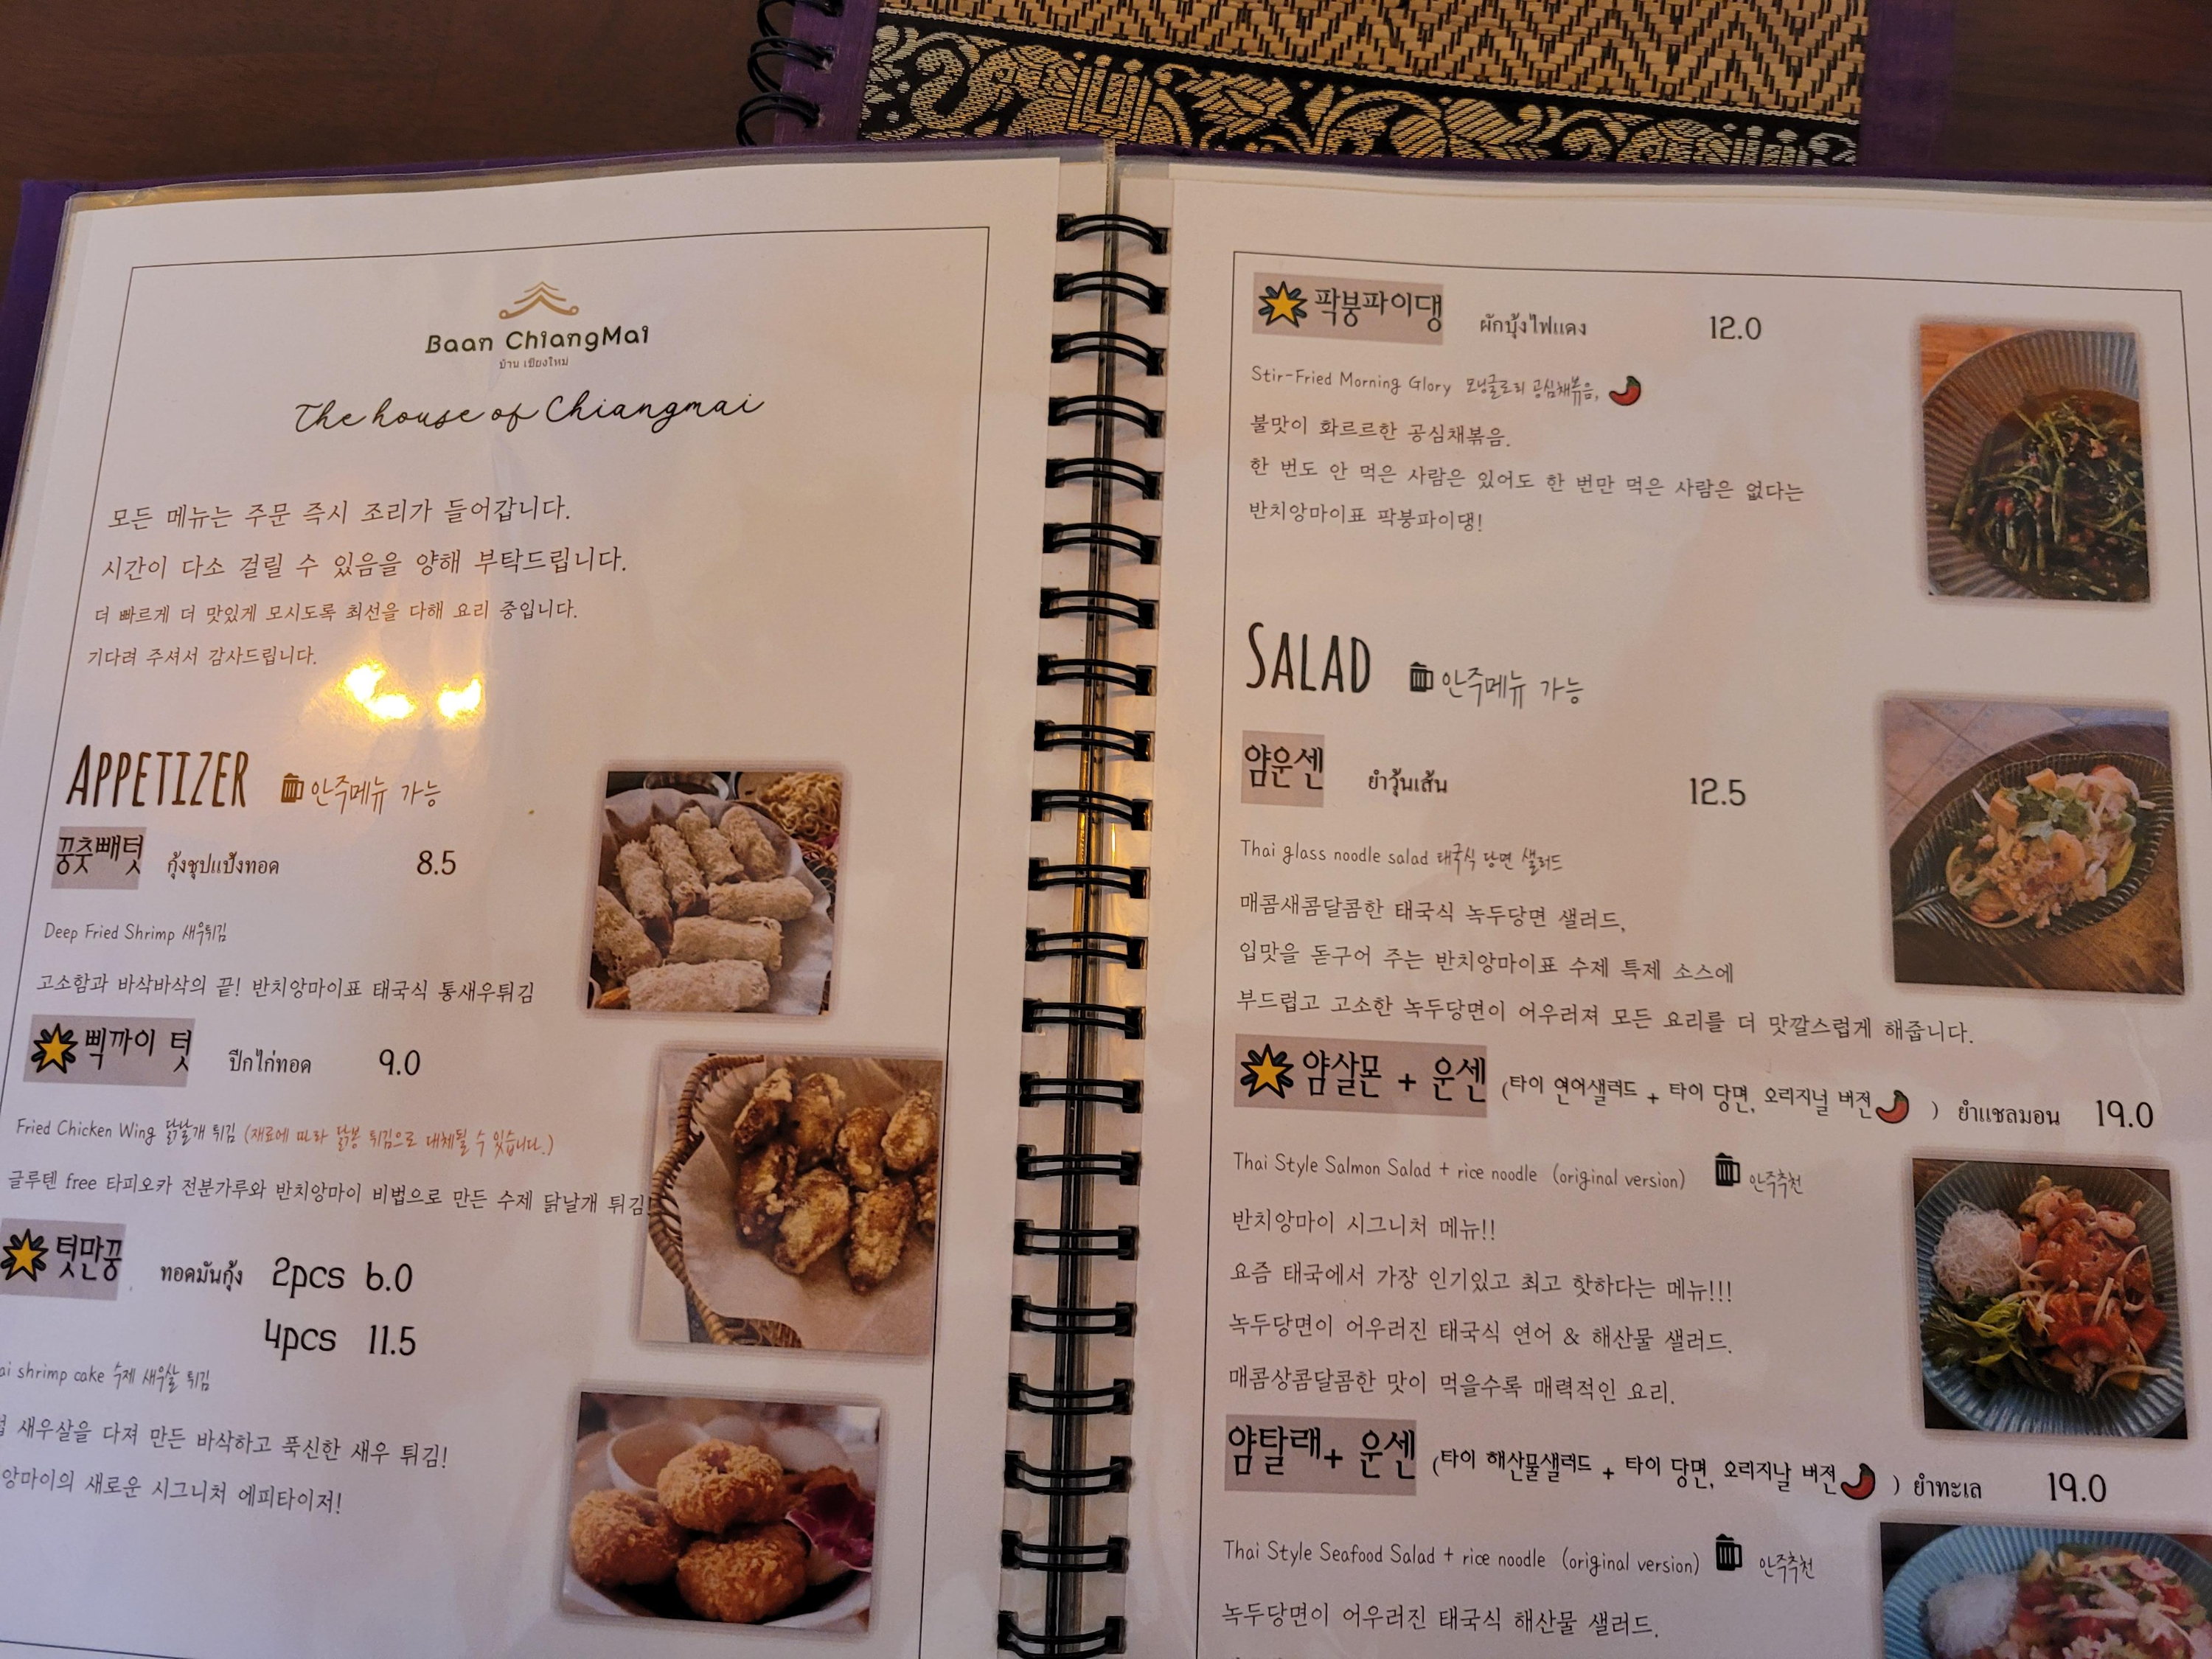 Baan ChiangMai
บ้าน เชียงใหม่
The house of Chiangmai
모든 메뉴는 주문 즉시 조리가 들어갑니다.
시간이 다소 걸릴 수 있음을 양해 부탁드립니다.
더 빠르게 더 맛있게 모시도록 최선을 다해 요리 중입니다.
기다려 주셔서 감사드립니다.
APPETIZER 안주메뉴 가능
꿍춧빼텃 กุ้งชุปแป้งทอด 8.5
Deep Fried Shrimp 새우튀김
고소함과 바삭바삭의 끝! 반치앙마이표 태국식 통새우튀김
삑까이 텃 ปีกไก่ทอด 9.0
Fried Chicken Wing 닭날개 튀김 (재료에 따라 닭봉 튀김으로 대체될 수 있습니다.)
글루텐 free 타피오카 전분가루와 반치앙마이 비법으로 만든 수제 닭날개 튀김!
텃만꿍 ทอดมันกุ้ง 2pcs 6.0
4pcs 11.5
ai shrimp cake 수제 새우살 튀김
새우살을 다져 만든 바삭하고 푹신한 새우 튀김!
앙마이의 새로운 시그니처 에피타이저!
팍붕파이댕 ผักบุ้งไฟแดง 12.0
Stir-Fried Morning Glory 모닝글로리 공심채볶음,
불맛이 화르르한 공심채볶음.
한 번도 안 먹은 사람은 있어도 한 번만 먹은 사람은 없다는
반치앙마이표 팍붕파이댕!
SALAD 안주메뉴 가능
얌운센 ยำวุ้นเส้น 12.5
Thai glass noodle salad 태국식 당면 샐러드
매콤새콤달콤한 태국식 녹두당면 샐러드,
입맛을 돋구어 주는 반치앙마이표 수제 특제 소스에
부드럽고 고소한 녹두당면이 어우러져 모든 요리를 더 맛깔스럽게 해줍니다.
얌살몬 + 운센 (타이 연어샐러드 + 타이 당면, 오리지널 버전 ) ยำแซลมอน 19.0
Thai Style Salmon Salad + rice noodle (original version) 안주추천
반치앙마이 시그니처 메뉴!!
요즘 태국에서 가장 인기있고 최고 핫하다는 메뉴!!!
녹두당면이 어우러진 태국식 연어 & 해산물 샐러드.
매콤상콤달콤한 맛이 먹을수록 매력적인 요리.
얌탈래+ 운센 (타이 해산물샐러드 + 타이 당면, 오리지날 버전 ) ยำทะเล 19.0
Thai Style Seafood Salad + rice noodle (original version) 안주추천
녹두당면이 어우러진 태국식 해산물 샐러드.